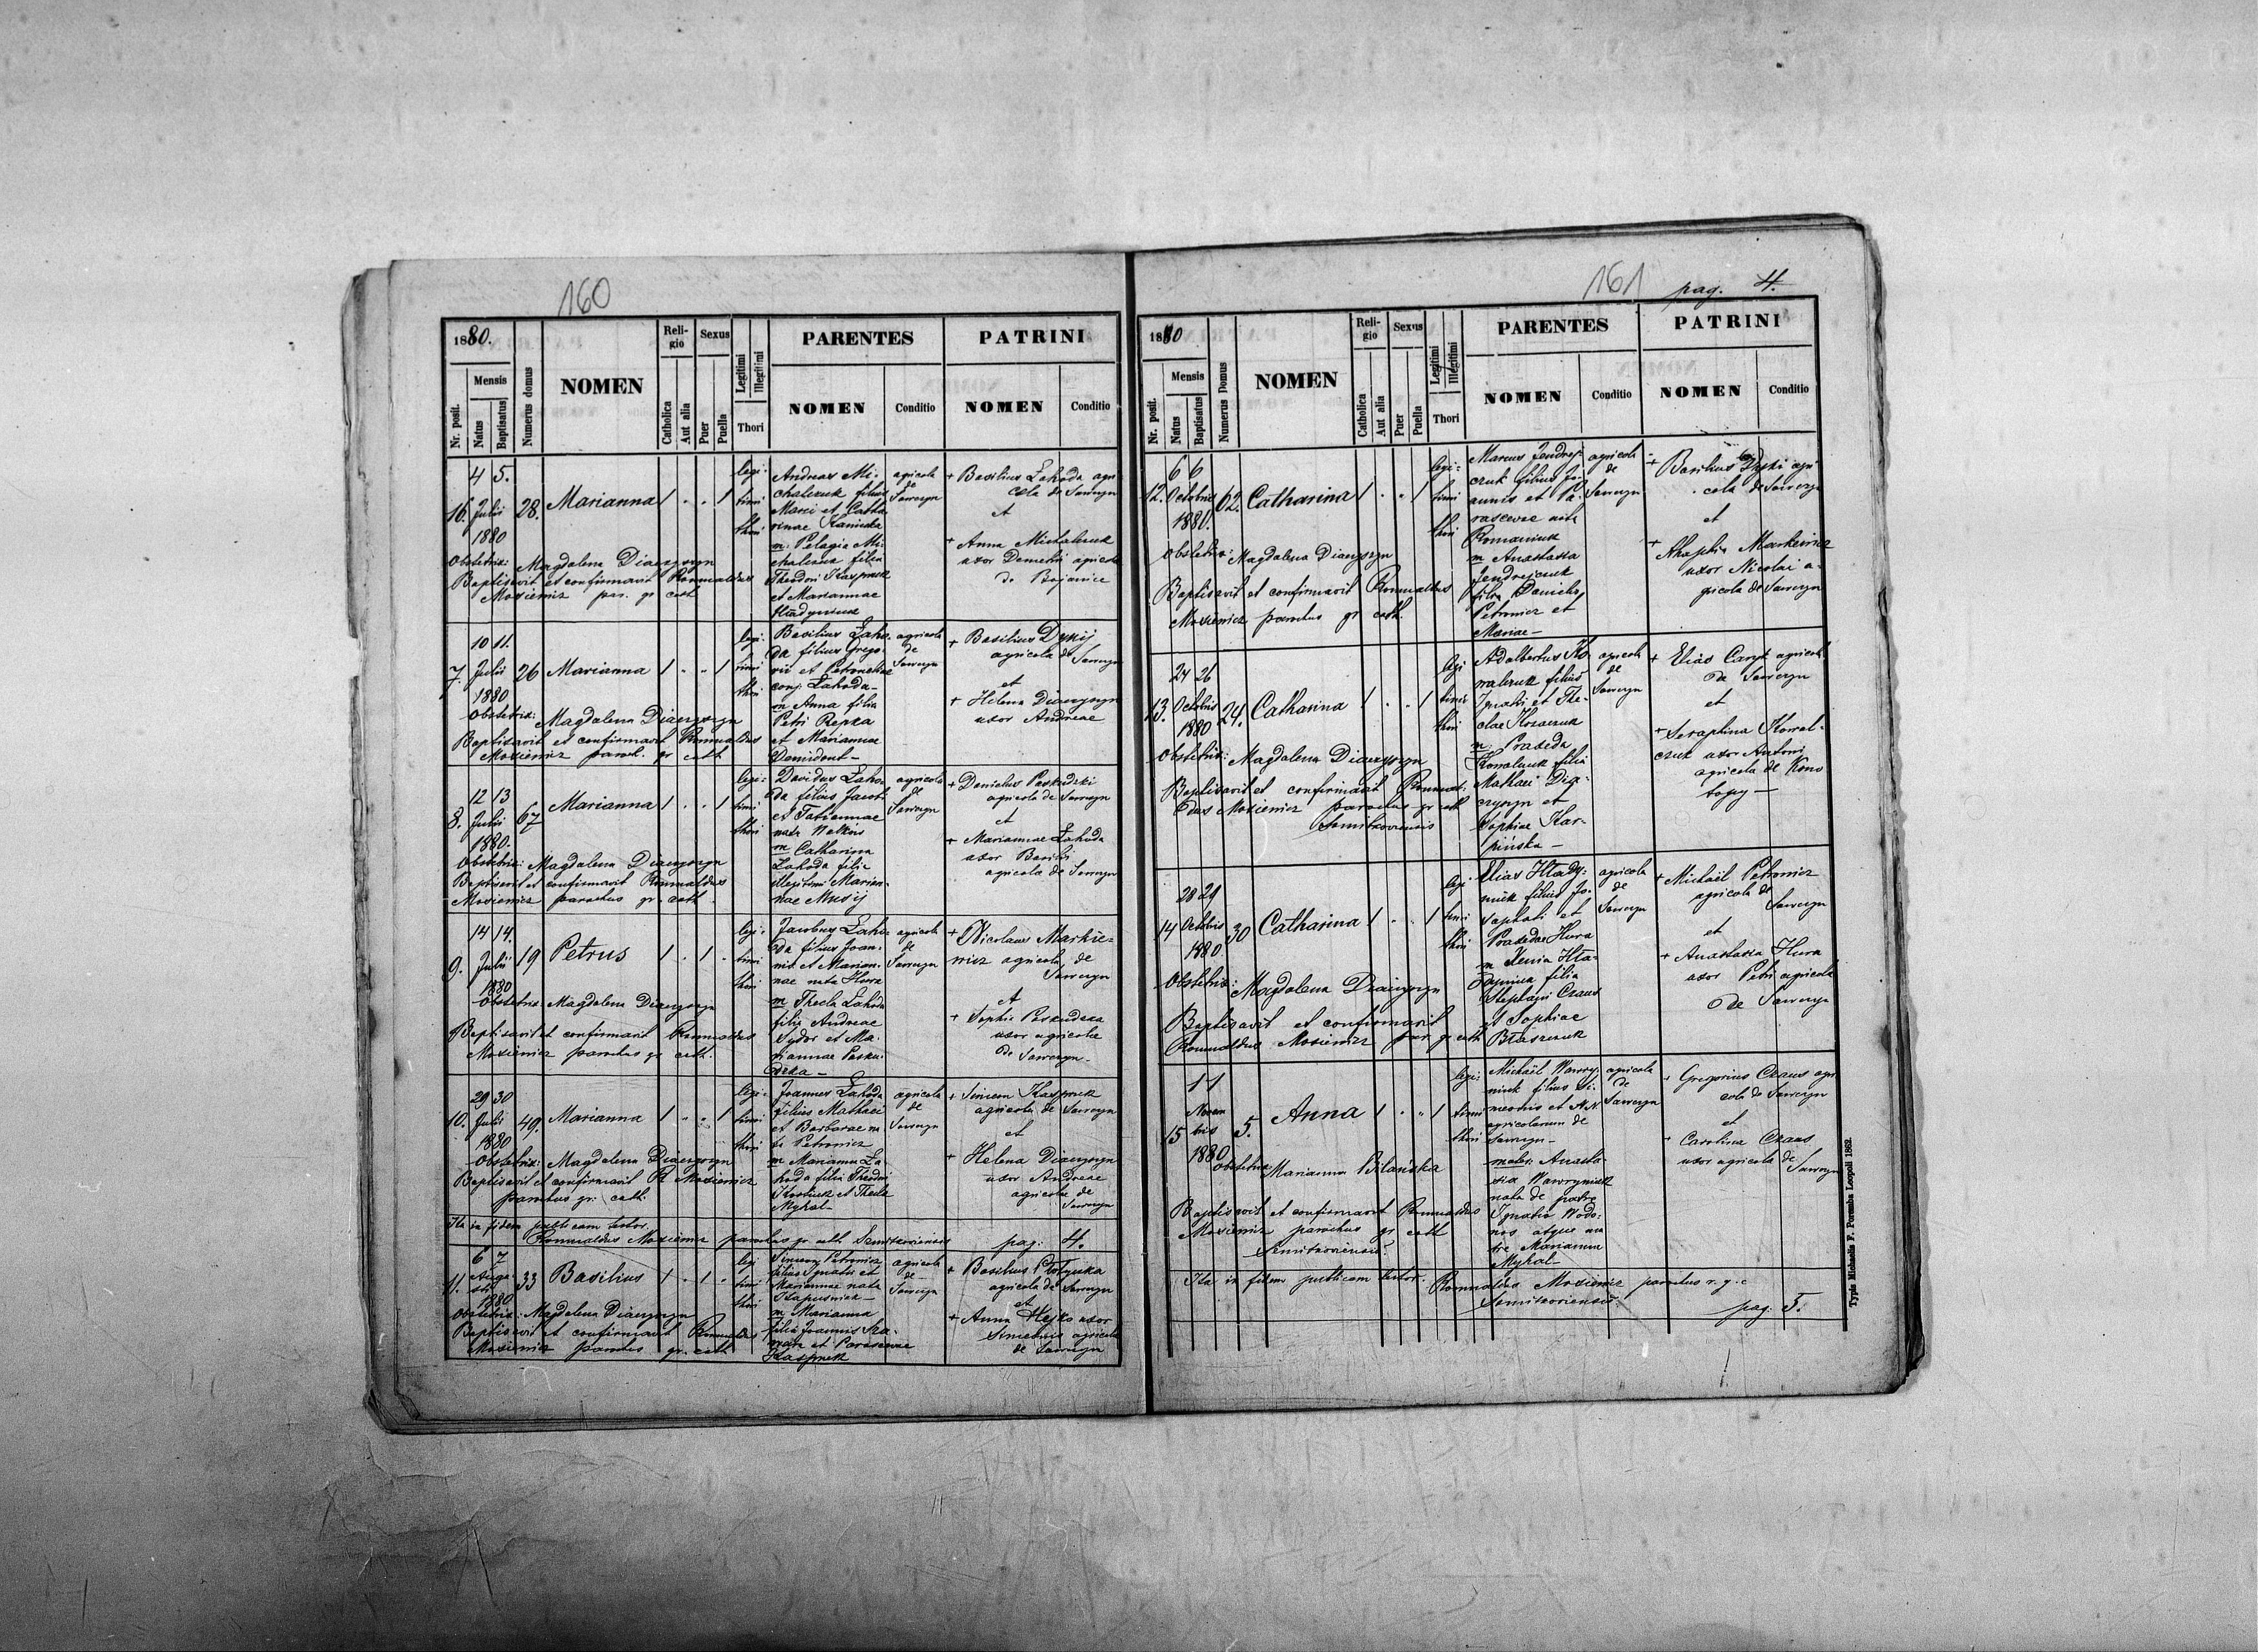 160
1880.
Nr. posit.
Mensis
Natus
Baptisatus
Numerus domus
NOMEN
Religio
Catholica
Aut alia
Sexus
Puer
Puella
Legitimi
Illegitimi
Thori
PARENTES
NOMEN
Conditio
PATRINI
NOMEN
Conditio
4 5.
16. Julii 28. Marianna 1 1
1880
legi-
timi
thori
Andreas Mi-
chalczuk filius
Marci et Catha-
rinae
m. Pelagia Mi-
chalczuk filia
Theodori Kaspruk
et Mariannae
agricola
de
Sawczyn
+ Basilius Łahoda agri
cola de Sawczyn
et
+ Anna Michalczuk
uxor Demetri agricola
de Bojanice
Obstetrix: Magdalena Dianyszyn
Baptisavit et confirmavit Romualdus
Mosiewicz par. gr cath
10 11.
7. Julii 26 Marianna 1 1
1880
legi-
timi
thori
Basilius Łaho-
da filius Grego-
rii et Petronellae
conj. Łahoda
m Anna filia
Petri Repka
et Mariannae
agricola
de
Sawczyn
+ Basilius Dykij
agricola de Sawczyn
et
+ Helena Dianyszyn
uxor Andreae
Obstetrix: Magdalena Dianyszyn
Baptisavit et confirmavit Romualdus
Mosiewicz paroch. gr cath
12 13
8. Julii 67 Marianna 1 1
1880.
legi-
timi
thori
Davidus Łaho-
da filius Jacobi
et Tatiannae
m Catharina
Łahoda filia
illegitimi Marian-
nae Musij
agricola
de
Sawczyn
+ Danielus
agricola de Sawczyn
et
+ Mariannae Łahoda
uxor Basilii
agricola de Sawczyn
Obstetrix: Magdalena Dianyszyn
Baptisavit et confirmavit Romualdus
Mosiewicz parochus gr. cath
14 14.
9. Julii 19 Petrus 1 1
1880
legi-
timi
thori
Jacobus Łaho-
da filius Joan-
nis et Marian-
nae nata Hura
m Thecla Łahoda
filia Andreae
Sydor et Ma-
riannae Pasku-
dzka –
agricola
de
Sawczyn
+ Nicolaus Markie-
wicz agricola de
Sawczyn
et
+ Sophia Paskudzka
uxor agricolae
de Sawczyn
Obstetrix: Magdalena Dianyszyn
Baptisavit et confirmavit Romualdus
Mosiewicz parochus gr cath.
29 30
10. Julii 49. Marianna 1 1
1880
legi-
timi
thori
Joannes Łahoda
filius Mathaei
et Barbarae
Petrowicz
m Marianna Ła
hoda filia Theodori
et Thecla
Mykal
agricola
de
Sawczyn
+ Simeon Kaspruk
agricola de Sawczyn
et
+ Helena Dianyszyn
uxor Andreae
agricola de
Sawczyn
Obstetrix: Magdalena Dianyszyn
Baptisavit et confirmavit R Mosiewicz
parochus gr. cath.
Ita in fidem publicam testor.
Romualdus Mosiewicz parochus gr. cath. pag: 4.
6 7
11. Augu- 33 Basilius 1 1
sti
1880
legi
timi
thori
Simeon Petrowicz
filius Ignatii et
Marianna nata
Kapusniak
m Marianna
filia Joannis
et Parasevae
Kaspruk
agricola
de
Sawczyn
+ Basilius
agricola de Sawczyn
et
+ Anna Hejko uxor
Simeonis agricola
de Sawczyn
Obstetrix: Magdalena Dianyszyn
Baptisavit et confirmavit Romualdus
Mosiewicz parochus gr. cath
161 pag. 4.
1880
Nr. posit.
Mensis
Natus
Baptisatus
Numerus Domus
NOMEN
Religio
Catholica
Aut alia
Sexus
Puer
Puella
Legitimi
Illegitimi
Thori
PARENTES
NOMEN
Conditio
PATRINI
NOMEN
Conditio
6 6
12. Octobris 62. Catharina 1 1
1880.
legi-
timi
thori
Marcus Jendrej-
czuk filius Jo-
annis et Pa-
rascevae nata
Romaniuk
m Anastasia
Jendrejczuk
filia Danielis
Petrowicz et
Mariae –
agricola
de
Sawczyn
+ Basilius agri
cola de Sawczyn
et
+ Ahaphia Markewicz
uxor Nicolai a-
gricola de Sawczyn
Obstetrix: Magdalena Dianyszyn
Baptisavit et confirmavit Romualdus
Mosiewicz parochus gr cath.
24 26
13. Octobris 24. Catharina 1 1
1880
legi
timi
thori
Adalbertus Ko-
walczuk filius
Ignatii et The-
clae
m. Praxeda
Kowalczuk filia
Mathaei Dia-
nyszyn et
Sophiae Kar-
pińska –
agricola
de
Sawczyn
+ Elias agricola
de Sawczyn
et
+ Seraphina Kowal-
czuk uxor Antoni
agricola de Kono
topy –
Obstetrix: Magdalena Dianyszyn
Baptisavit et confirmavit Romual-
dus Mosiewicz parochus gr cath
28 29
14 Octobris 30 Catharina 1 1
1880.
legi
timi
thori
Elias Hłady-
niuk filius Jo-
saphati et
Praxedae Hura
m Xenia Hła-
dyniuk filia
Stephani Czaus
et Sophiae
Błaszczuk
agricola
de
Sawczyn
+ Michaël Petrowicz
agricola de
Sawczyn
et
+ Anastasia Hura
uxor Petri agricola
de Sawczyn
Obstetrix: Magdalena Dianyszyn
Baptisavit et confirmavit
Romualdus Mosiewicz par. gr cath
1 1
15 Novem 5. Anna 1 1
bris
1880
legi-
timi
thori
Michaël Wawry-
niuk filius Si-
meonis et N.N.
agricolarum de
Sawczyn –
mater: Anasta-
sia Wawryniuk
nata de patre
Ignatio Wodo-
nos atque ma
tre Marianna
Mykal –
agricola
de
Sawczyn
+ Gregorius Czaus agri
cola de Sawczyn
et
+ Carolina Czaus
uxor agricola de
Sawczyn
Obstetrix Marianna Bilańska
Baptisavit et confirmavit Romualdus
Mosiewicz parochus gr cath
Ita in fidem publicam testor. Romualdus Mosiewicz parochus r. g. c
pag. 5.
Typis Michaelis F. Poremba Leopoli 1862.